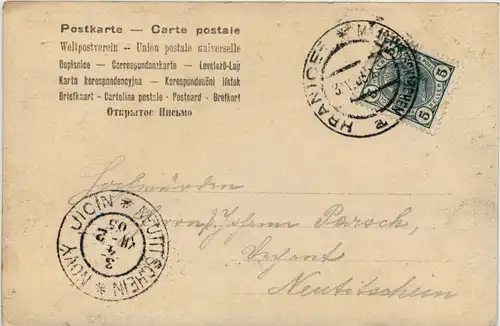 Postkarte — Carte postale
Weltpostverein — Union postale universelle
Dopisnice — Correspondenzkarte — Levelező-Lap
Karta korespondencyjna — Korespondenčni listek
Briefkaart - Cartolina postale - Postcard - Brefkort
Открытое Письмо
HRANICE * M
5 5
NEUTITSCHEIN * NOVÝ JICIN *
3
Hochwürden
Herrn Johann Parsch,
Dechant
Neutitschein